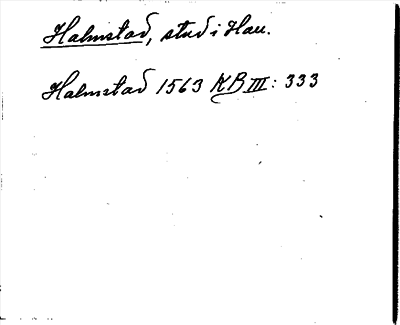 Halmstad, stad i Hall.
Halmstad 1563 KB III: 333